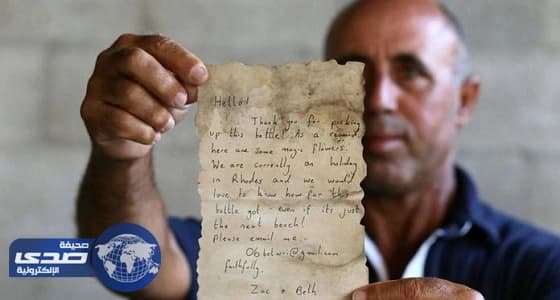 Hello!
Thank you for picking
up this bottle! As a reward
here are some magic flowers.
We are currently on holiday
in Rhodes and we would
love to know how far this
bottle got - even if its just
the next beach!
Please email me:-
@gmail.com
faithfully.
Zac + Beth
صحيفة
صدى
الإلكترونية